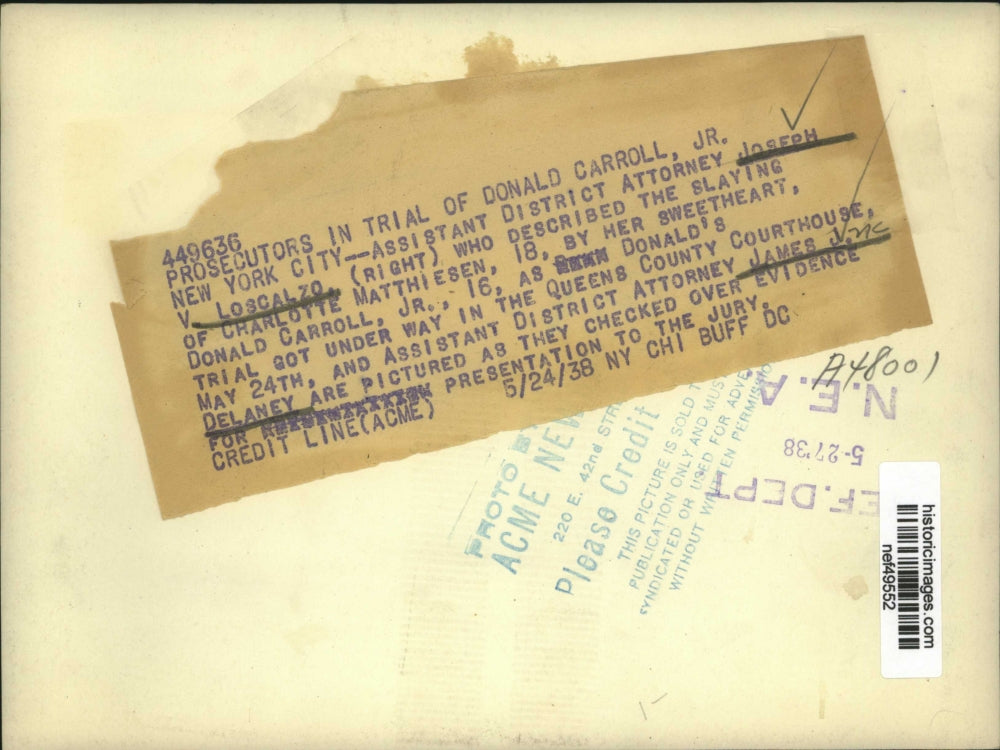 449636
PROSECUTORS IN TRIAL OF DONALD CARROLL, JR.
NEW YORK CITY--ASSISTANT DISTRICT ATTORNEY JOSEPH
V. LOSCALZO, (RIGHT) WHO DESCRIBED THE SLAYING
OF CHARLOTTE MATTHIESEN, 18, BY HER SWEETHEART,
DONALD CARROLL, JR., 16, AS DONALD'S
TRIAL GOT UNDER WAY IN THE QUEENS COUNTY COURTHOUSE,
MAY 24TH, AND ASSISTANT DISTRICT ATTORNEY JAMES J. MC
DELANEY ARE PICTURED AS THEY CHECKED OVER EVIDENCE
FOR PRESENTATION TO THE JURY.
CREDIT LINE(ACME) 5/24/38 NY CHI BUFF DC
A48001
N.E.A.
5-27'38
EF. DEPT
PHOTO B
ACME NEW
220 E. 42nd STR
Please Credit
THIS PICTURE IS SOLD
PUBLICATION ONLY AND MUS
SYNDICATED OR USED FOR ADVE
WITHOUT WRITTEN PERMISSIO
historicimages.com
nef49552